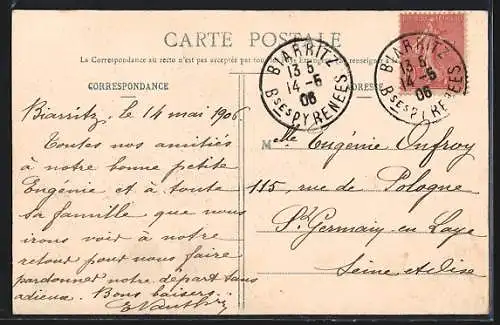 CARTE POSTALE
La Correspondance au recto n'est pas acceptée par tous
CORRESPONDANCE
ADRESSE
BIARRITZ
13 5
14 -5
06
Bses PYRENEES
BIARRITZ
13 5
14 -5
06
Bses PYRENEES
Biarritz, le 14 mai 1906
Toutes nos amitiés
à notre bonne petite
Eugénie et à toute
sa famille que nous
irons voir à notre
retour pour nous faire
pardonner notre départ sans
adieux. Bons baisers.
Melle Eugénie Onfroy
115, rue de Pologne
St Germain en Laye
Seine et Oise